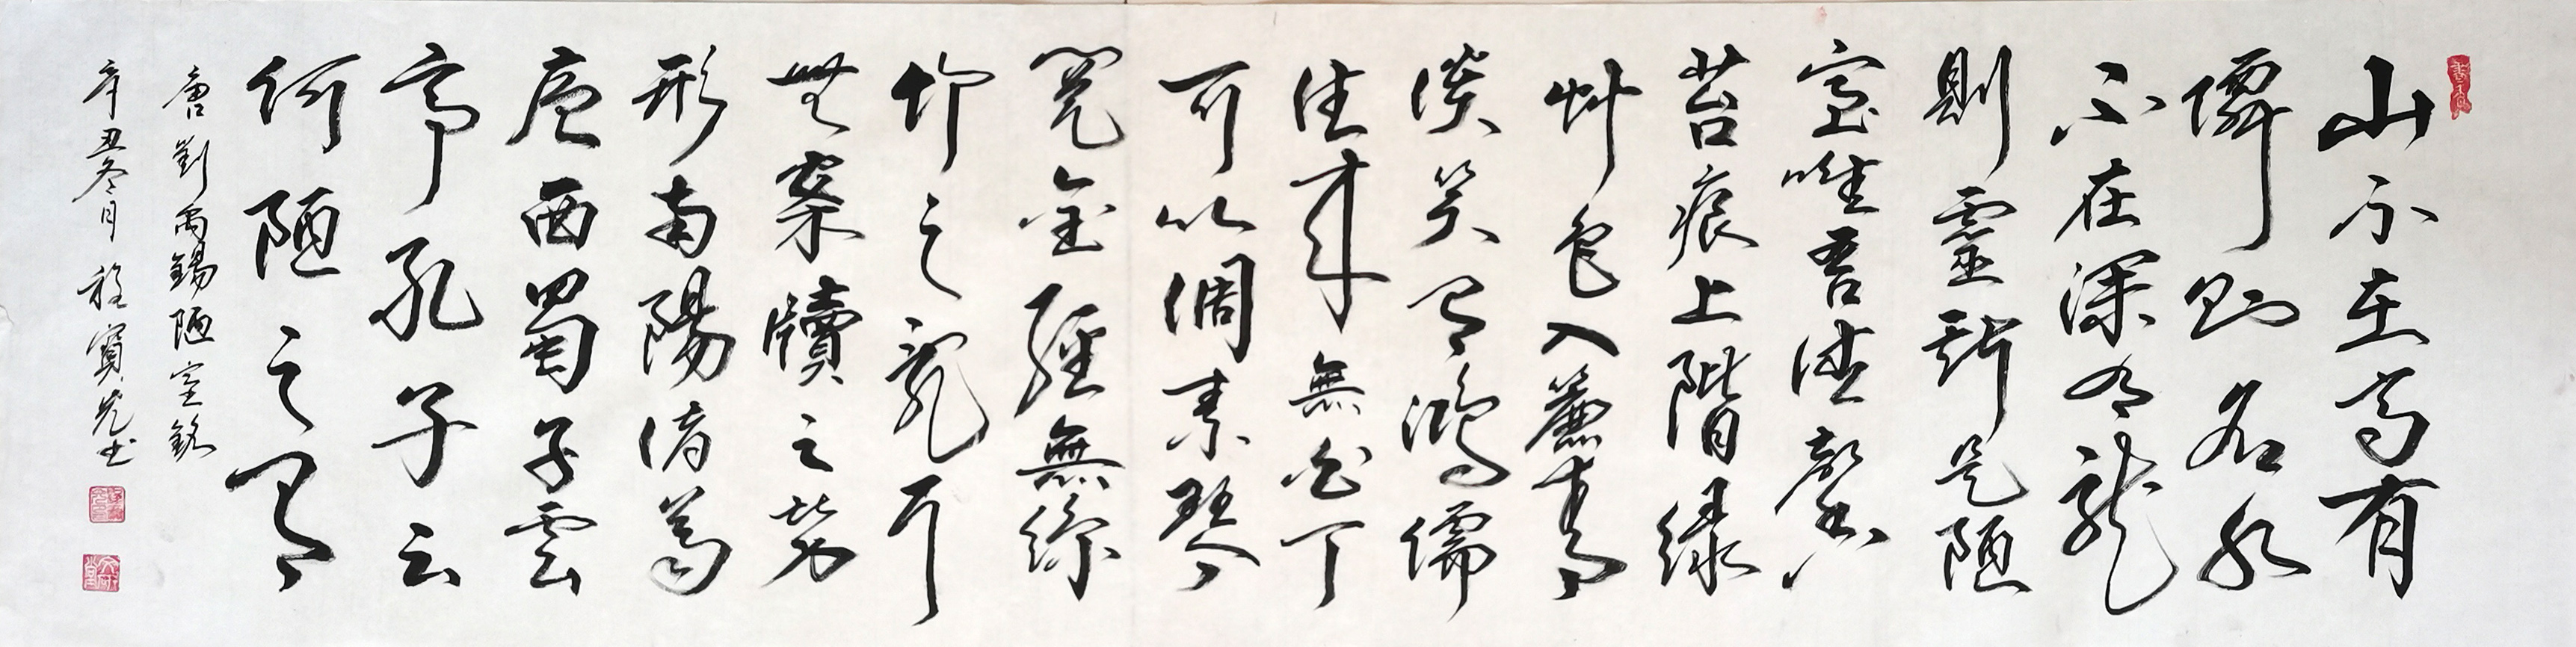 山不在高有
僊則名水
不在深有龍
則靈斯是陋
室唯吾德馨
苔痕上階緑
艸色入簾青
談笑有鴻儒
往來無白丁
可以調素琴
閱金經無絲
竹之亂耳
無案牘之勞
形南陽諸葛
廬西蜀子雲
亭孔子云
何陋之有
唐劉禹錫陋室銘
辛丑冬月 程寶書